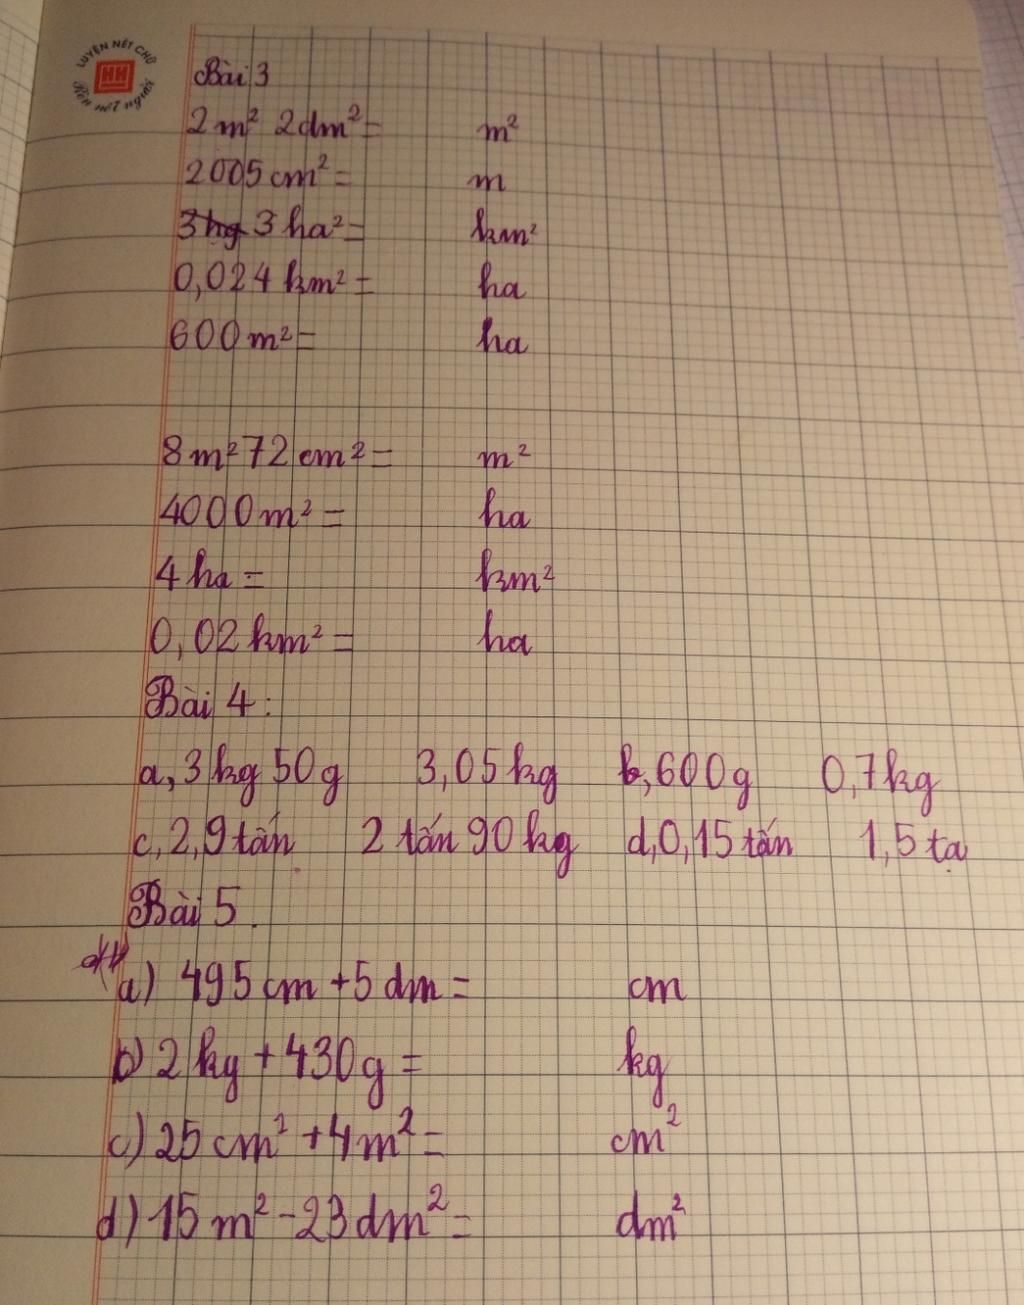 LUYỆN NÉT CHỮ
HH
Rèn nết người
Bài 3
2 m² 2dm² = m²
2005 cm² = m
3hg 3 ha² = km²
0,024 km² = ha
600 m² = ha
8 m² 72 cm² = m²
4000 m² = ha
4 ha = km²
0,02 km² = ha
Bài 4:
a, 3 kg 50 g 3,05 kg b, 600 g 0,7 kg
c, 2,9 tấn 2 tấn 90 kg d, 0,15 tấn 1,5 tạ
Bài 5.
a) 495 cm + 5 dm = cm
b) 2 kg + 430g = kg
c) 25 cm² + 4 m² = cm²
d) 15 m² - 23 dm² = dm²